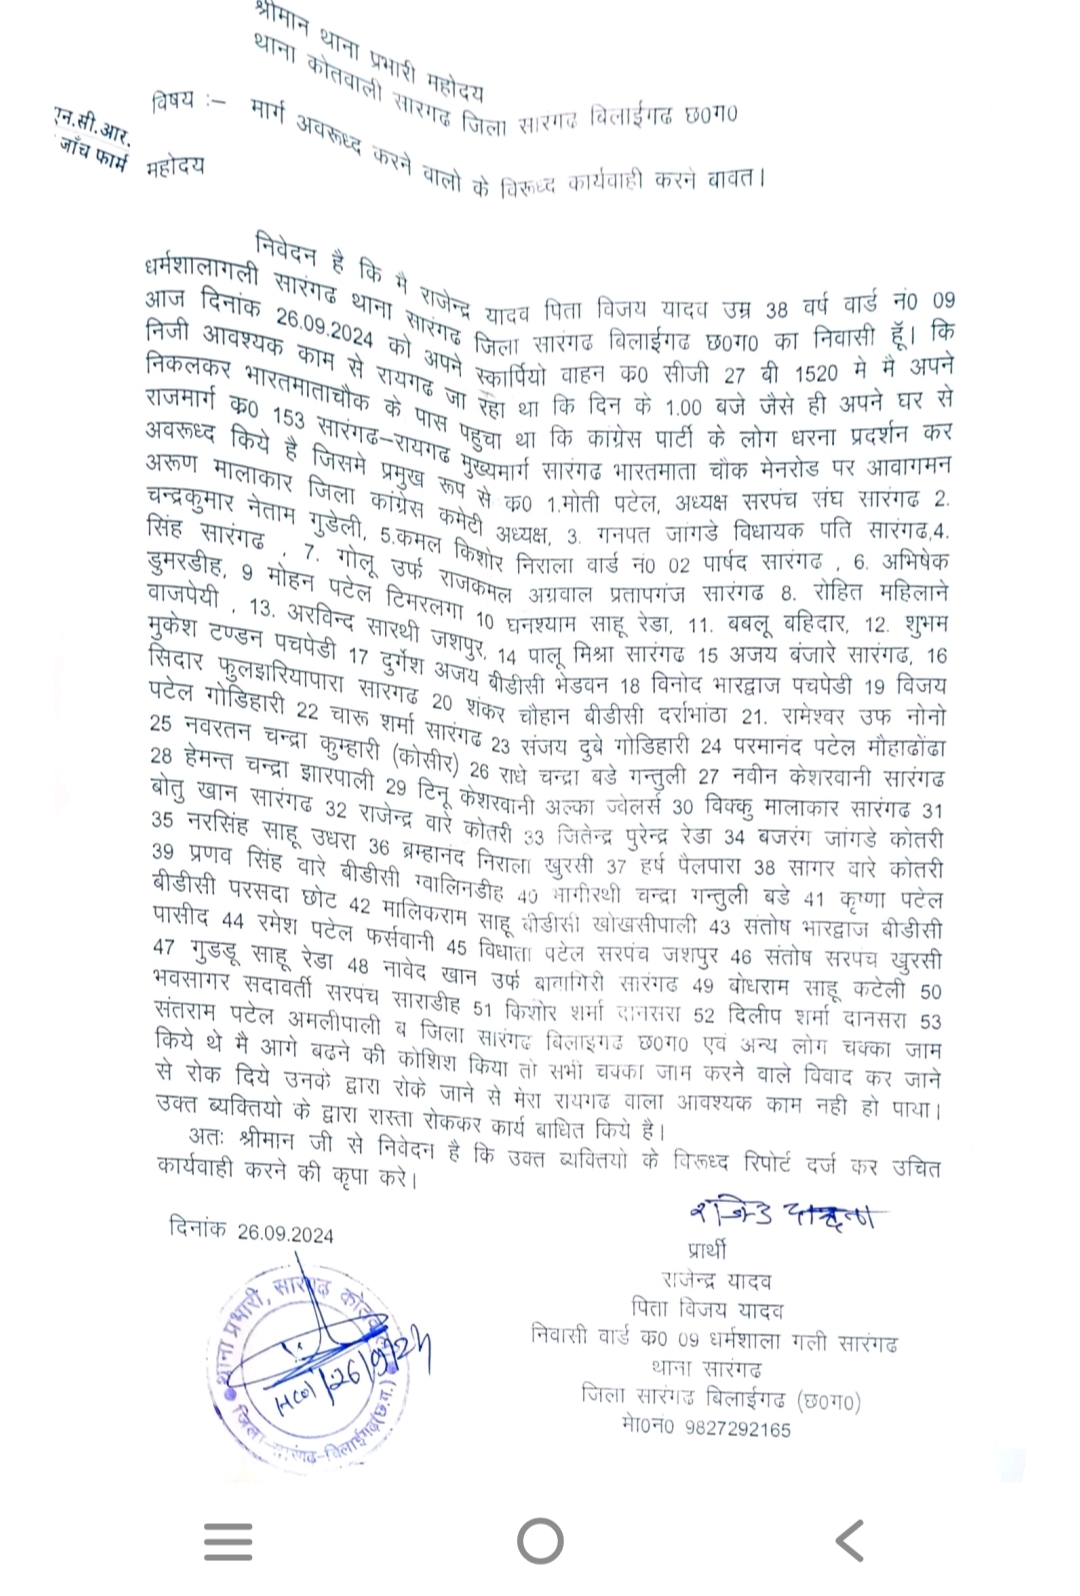 श्रीमान थाना प्रभारी महोदय
थाना कोतवाली सारगढ जिला सारंगढ बिलाईगढ छ0ग0
विषय :- मार्ग अवरूध्द करने वालो के विरूध्द कार्यवाही करने बावत।
एन.सी.आर.
जाँच फार्म
महोदय
निवेदन है कि मै राजेन्द्र यादव पिता विजय यादव उम्र 38 वर्ष वार्ड नं0 09
धर्मशालागली सारंगढ थाना सारंगढ जिला सारंगढ बिलाईगढ छ0ग0 का निवासी हूॅं। कि
आज दिनांक 26.09.2024 को अपने स्कार्पियो वाहन क0 सीजी 27 बी 1520 मे मै अपने
निजी आवश्यक काम से रायगढ जा रहा था कि दिन के 1.00 बजे जैसे ही अपने घर से
निकलकर भारतमाताचौक के पास पहुचा था कि कांग्रेस पार्टी के लोग धरना प्रदर्शन कर
राजमार्ग क0 153 सारंगढ-रायगढ मुख्यमार्ग सारंगढ भारतमाता चौक मेनरोड पर आवागमन
अवरूध्द किये है जिसमे प्रमुख रूप से क0 1.मोती पटेल, अध्यक्ष सरपंच संघ सारंगढ 2.
अरूण मालाकार जिला कांग्रेस कमेटी अध्यक्ष, 3. गनपत जांगडे विधायक पति सारंगढ,4.
चन्द्रकुमार नेताम गुडेली, 5.कमल किशोर निराला वार्ड नं0 02 पार्षद सारंगढ , 6. अभिषेक
सिंह सारंगढ , 7. गोलू उर्फ राजकमल अग्रवाल प्रतापगंज सारंगढ 8. रोहित महिलाने
डुमरडीह, 9 मोहन पटेल टिमरलगा 10 घनश्याम साहू रेडा, 11. बबलू बहिदार, 12. शुभम
वाजपेयी , 13. अरविन्द सारथी जशपुर, 14 पालू मिश्रा सारंगढ 15 अजय बंजारे सारंगढ, 16
मुकेश टण्डन पचपेडी 17 दुर्गेश अजय बीडीसी भेडवन 18 विनोद भारद्वाज पचपेडी 19 विजय
सिदार फुलझरियापारा सारगढ 20 शंकर चौहान बीडीसी दर्राभांठा 21. रामेश्वर उफ नोनो
पटेल गोडिहारी 22 चारू शर्मा सारंगढ 23 संजय दुबे गोडिहारी 24 परमानंद पटेल मौहाढोंढा
25 नवरतन चन्द्रा कुम्हारी (कोसीर) 26 राधे चन्द्रा बडे गन्तुली 27 नवीन केशरवानी सारंगढ
28 हेमन्त चन्द्रा झारपाली 29 टिनू केशरवानी अल्का ज्वेलर्स 30 विक्कु मालाकार सारंगढ 31
बोतु खान सारंगढ 32 राजेन्द्र वारे कोतरी 33 जितेन्द्र पुरेन्द्र रेडा 34 बजरंग जांगडे कोतरी
35 नरसिंह साहू उधरा 36 ब्रम्हानंद निराला खुरसी 37 हर्ष पैलपारा 38 सागर वारे कोतरी
39 प्रणव सिंह वारे बीडीसी ग्वालिनडीह 40 भागीरथी चन्द्रा गन्तुली बडे 41 कृष्णा पटेल
बीडीसी परसदा छोट 42 मालिकराम साहू बीडीसी खोखसीपाली 43 संतोष भारद्वाज बीडीसी
पासीद 44 रमेश पटेल फर्सवानी 45 विधाता पटेल सरपंच जशपुर 46 संतोष सरपंच खुरसी
47 गुडडू साहू रेडा 48 नावेद खान उर्फ बाबागिरी सारंगढ 49 बोधराम साहू कटेली 50
भवसागर सदावर्ती सरपंच साराडीह 51 किशोर शर्मा दानसरा 52 दिलीप शर्मा दानसरा 53
संतराम पटेल अमलीपाली ब जिला सारंगढ बिलाइगढ छ0ग0 एवं अन्य लोग चक्का जाम
किये थे मै आगे बढने की कोशिश किया तो सभी चक्का जाम करने वाले विवाद कर जाने
से रोक दिये उनके द्वारा रोके जाने से मेरा रायगढ वाला आवश्यक काम नही हो पाया।
उक्त ब्यक्तियो के द्वारा रास्ता रोककर कार्य बाधित किये है।
अतः श्रीमान जी से निवेदन है कि उक्त ब्यक्तियो के विरूध्द रिपोर्ट दर्ज कर उचित
कार्यवाही करने की कृपा करे।
दिनांक 26.09.2024
प्रार्थी
राजेन्द्र यादव
पिता विजय यादव
निवासी वार्ड क0 09 धर्मशाला गली सारंगढ
थाना सारंगढ
जिला सारंगढ बिलाईगढ (छ0ग0)
मो0न0 9827292165
थाना प्रभारी, सारंगढ़ कोतवाली
HC01 26/9/24
जिला-सारंगढ़-बिलाईगढ़(छ.ग.)